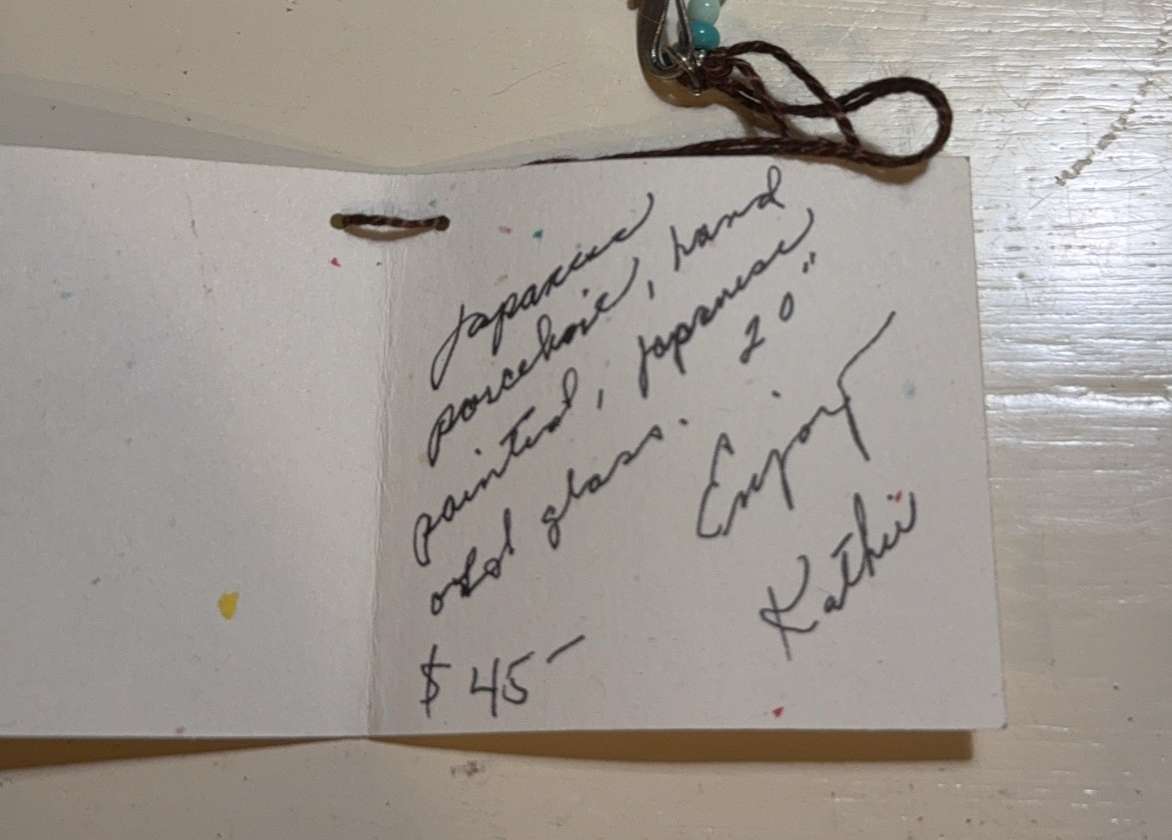 Japanese
porcelain, hand
painted, Japanese
old glass. 20"
Enjoy
Kathii
$45–